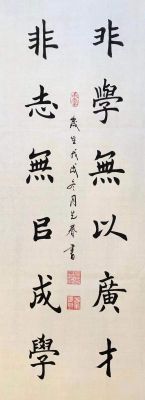 非學無以廣才
非志無㠯成學
歲在戊戌冬月書